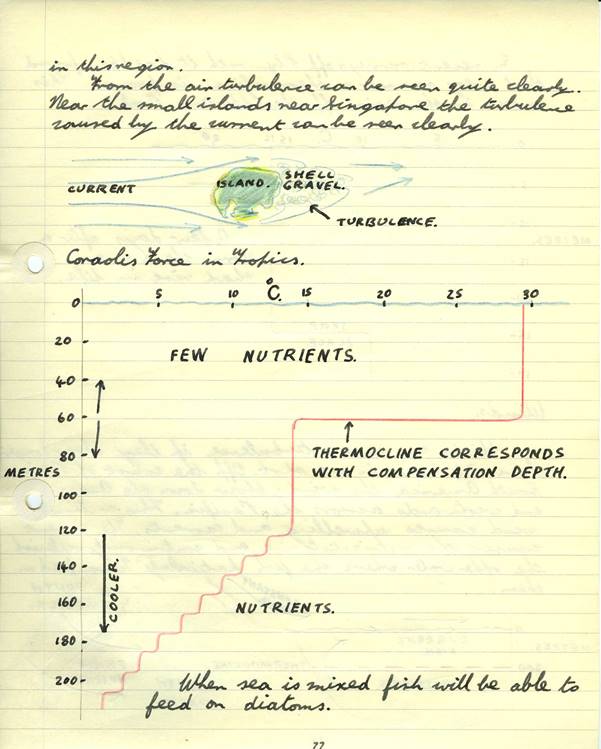 in this region.
From the air turbulence can be seen quite clearly.
Near the small islands near Singapore the turbulence
caused by the current can be seen clearly.
CURRENT
ISLAND.
SHELL
GRAVEL.
TURBULENCE.
Coraolis Force in Tropics.
°C.
0 5 10 15 20 25 30
20
FEW NUTRIENTS.
40
60
THERMOCLINE CORRESPONDS
WITH COMPENSATION DEPTH.
80
METRES
100
120
140
COOLER.
160
NUTRIENTS.
180
200
When sea is mixed fish will be able to
feed on diatoms.
77